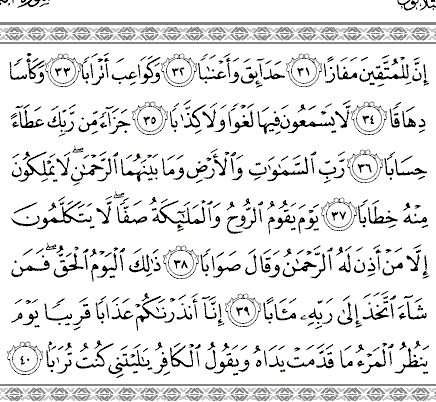 إِنَّ لِلْمُتَّقِينَ مَفَازًا ٣١ حَدَآئِقَ وَأَعْنَٰبًا ٣٢ وَكَوَاعِبَ أَتْرَابًا ٣٣ وَكَأْسًا
دِهَاقًا ٣٤ لَّا يَسْمَعُونَ فِيهَا لَغْوًا وَلَا كِذَّٰبًا ٣٥ جَزَآءً مِّن رَّبِّكَ عَطَآءً
حِسَابًا ٣٦ رَّبِّ السَّمَٰوَٰتِ وَالْأَرْضِ وَمَا بَيْنَهُمَا الرَّحْمَٰنِ ۖ لَا يَمْلِكُونَ
مِنْهُ خِطَابًا ٣٧ يَوْمَ يَقُومُ الرُّوحُ وَالْمَلَٰٓئِكَةُ صَفًّا ۖ لَّا يَتَكَلَّمُونَ
إِلَّا مَنْ أَذِنَ لَهُ الرَّحْمَٰنُ وَقَالَ صَوَابًا ٣٨ ذَٰلِكَ الْيَوْمُ الْحَقُّ ۖ فَمَن
شَآءَ اتَّخَذَ إِلَىٰ رَبِّهِۦ مَـَٔابًا ٣٩ إِنَّآ أَنذَرْنَٰكُمْ عَذَابًا قَرِيبًا يَوْمَ
يَنظُرُ الْمَرْءُ مَا قَدَّمَتْ يَدَاهُ وَيَقُولُ الْكَافِرُ يَٰلَيْتَنِي كُنتُ تُرَٰبًا ٤٠